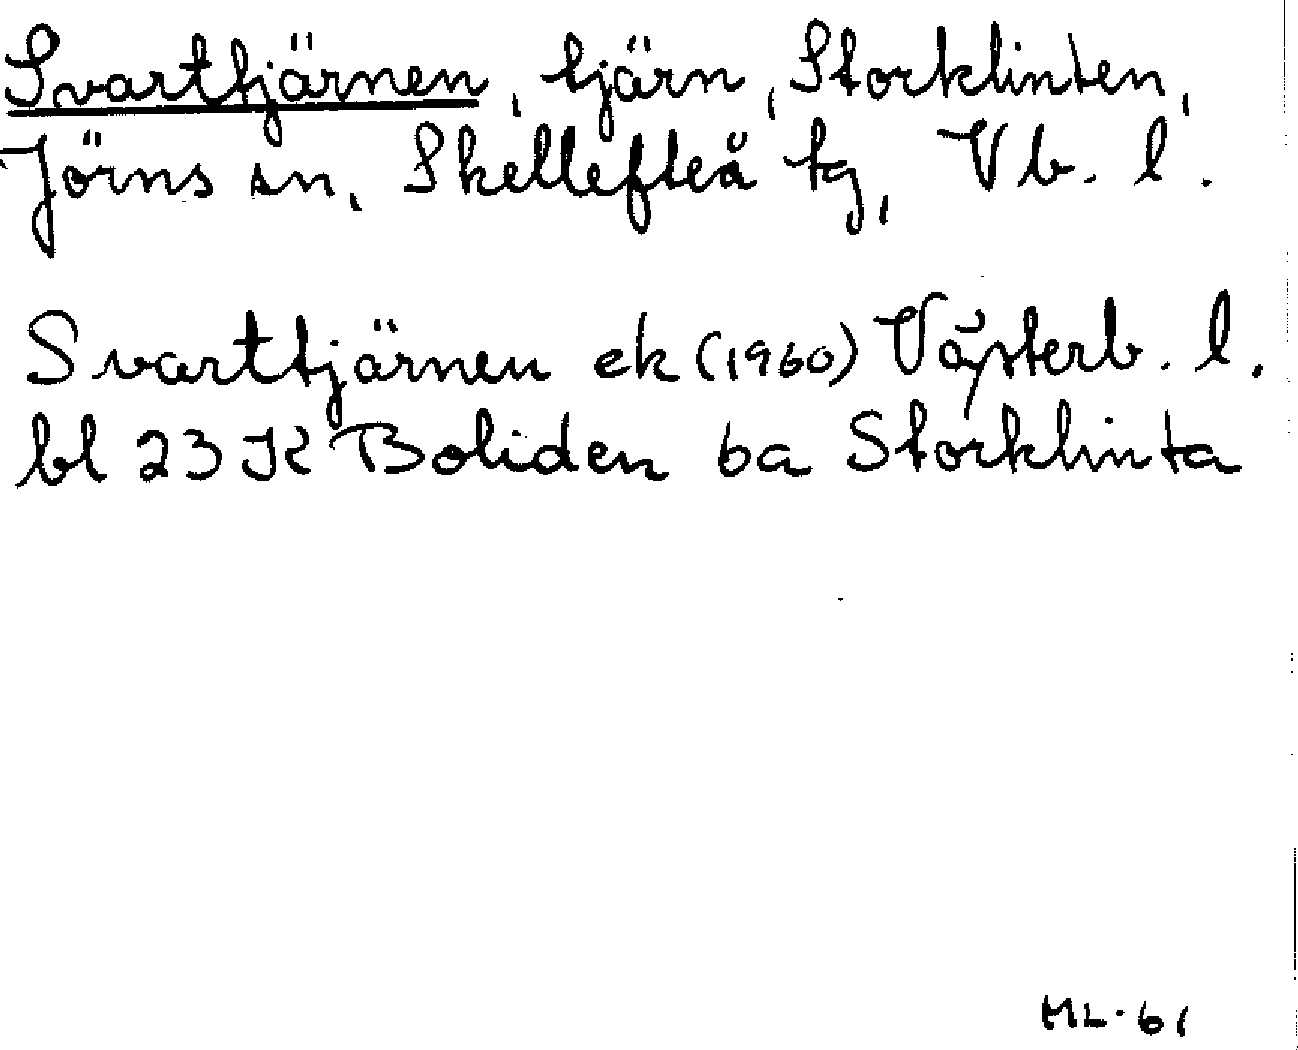 Svarttjärnen, tjärn, Storklinten,
Jörns sn, Skellefteå tg, Vb. l.
Svarttjärnen ek (1960) Västerb. l.
bl 23 K Boliden ba Storklinta
ML-61